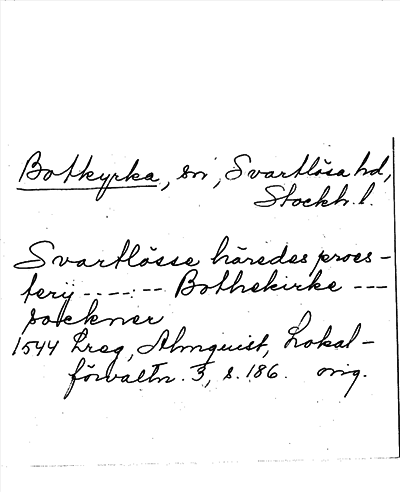 Botkyrka, sn, Svartlösa hd,
Stockh. l.
Svartlösse häredes proes-
terij ------- Bothekirke ---
sockner
1544 Lreg, Almquist, Lokal-
förvaltn. 3, s. 186. orig.